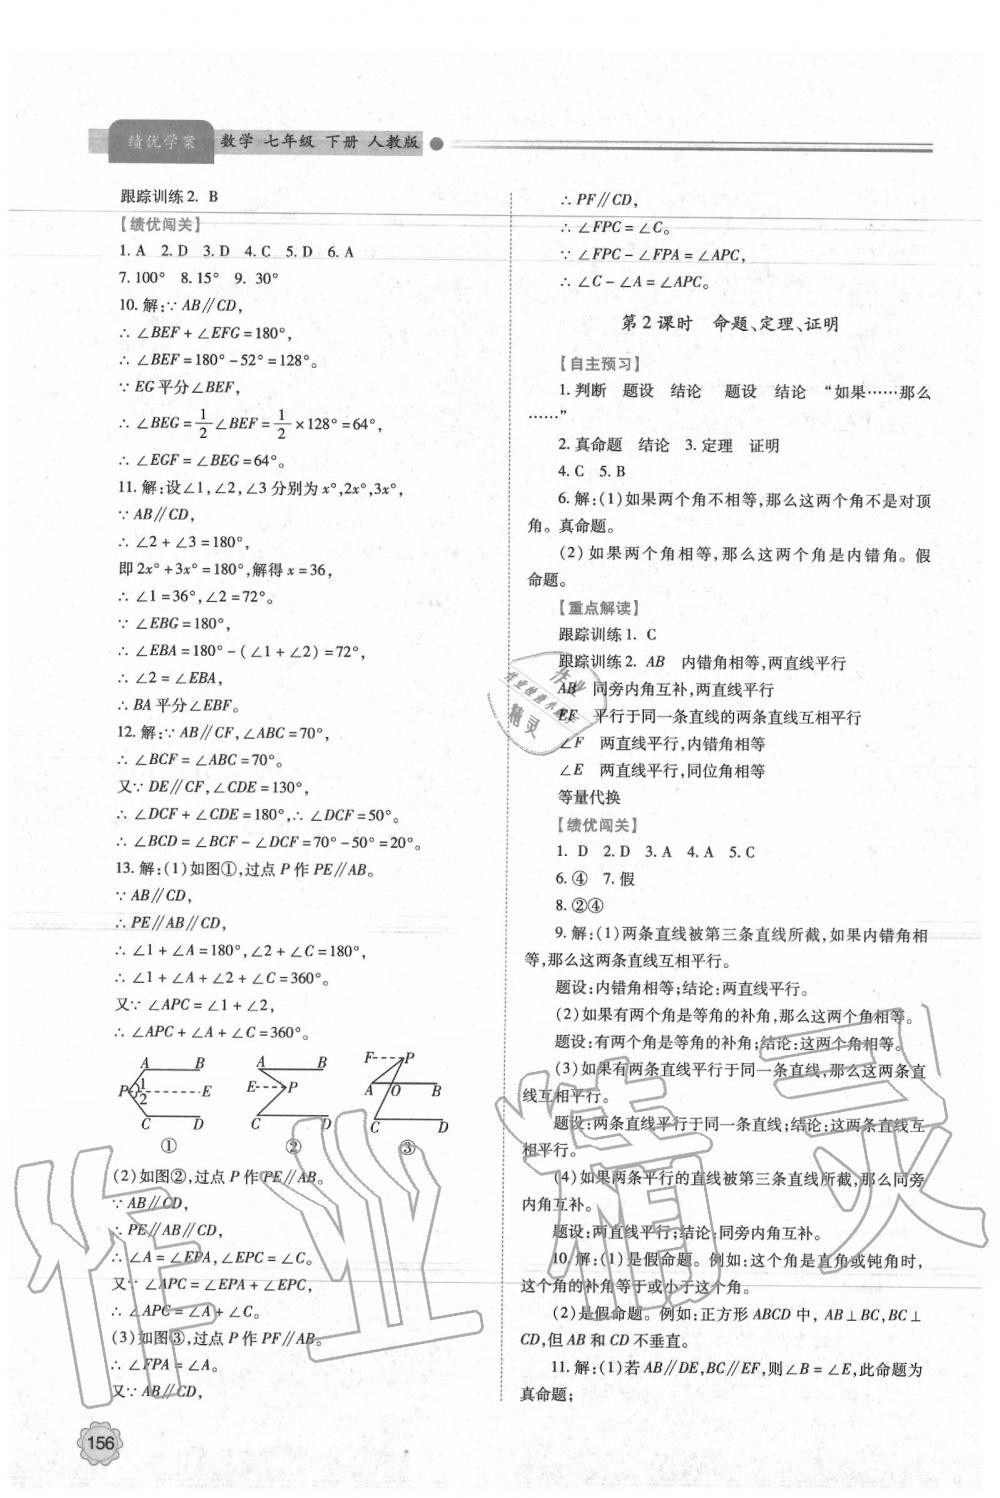 绩优学案 数学 七年级 下册 人教版
跟踪训练2. B
【绩优闯关】
1. A 2. D 3. D 4. C 5. D 6. A
7. 100° 8. 15° 9. 30°
10. 解:∵ AB∥CD,
∴ ∠BEF + ∠EFG = 180°,
∴ ∠BEF = 180° - 52° = 128°。
∵ EG 平分∠BEF,
∴ ∠BEG = 1/2 ∠BEF = 1/2 × 128° = 64°,
∴ ∠EGF = ∠BEG = 64°。
11. 解:设∠1,∠2,∠3 分别为 x°,2x°,3x°,
∵ AB∥CD,
∴ ∠2 + ∠3 = 180°,
即 2x° + 3x° = 180°,解得 x = 36,
∴ ∠1 = 36°,∠2 = 72°。
∵ ∠EBG = 180°,
∴ ∠EBA = 180° - ( ∠1 + ∠2) = 72°,
∴ ∠2 = ∠EBA,
∴ BA 平分∠EBF。
12. 解:∵ AB∥CF,∠ABC = 70°,
∴ ∠BCF = ∠ABC = 70°。
又∵ DE∥CF,∠CDE = 130°,
∴ ∠DCF + ∠CDE = 180°,∴ ∠DCF = 50°。
∴ ∠BCD = ∠BCF - ∠DCF = 70° - 50° = 20°。
13. 解:(1)如图①,过点 P 作 PE∥AB。
∵ AB∥CD,
∴ PE∥AB∥CD,
∴ ∠1 + ∠A = 180°,∠2 + ∠C = 180°,
∴ ∠1 + ∠A + ∠2 + ∠C = 360°。
又∵ ∠APC = ∠1 + ∠2,
∴ ∠APC + ∠A + ∠C = 360°。
A B P 1 2 E C D ①
A B E P C D ②
F P A O B C D ③
(2)如图②,过点 P 作 PE∥AB。
∵ AB∥CD,
∴ PE∥AB∥CD,
∴ ∠A = ∠EPA,∠EPC = ∠C。
又∵ ∠APC = ∠EPA + ∠EPC,
∴ ∠APC = ∠A + ∠C。
(3)如图③,过点 P 作 PF∥AB。
∴ ∠FPA = ∠A。
又∵ AB∥CD,
156
∴ PF∥CD,
∴ ∠FPC = ∠C。
∵ ∠FPC - ∠FPA = ∠APC,
∴ ∠C - ∠A = ∠APC。
第 2 课时 命题、定理、证明
【自主预习】
1. 判断 题设 结论 题设 结论 “如果……那么
……”
2. 真命题 结论 3. 定理 证明
4. C 5. B
6. 解:(1)如果两个角不相等,那么这两个角不是对顶
角。真命题。
(2)如果两个角相等,那么这两个角是内错角。假
命题。
【重点解读】
跟踪训练1. C
跟踪训练2. AB 内错角相等,两直线平行
AB 同旁内角互补,两直线平行
EF 平行于同一条直线的两条直线互相平行
∠F 两直线平行,内错角相等
∠E 两直线平行,同位角相等
等量代换
【绩优闯关】
1. D 2. D 3. A 4. A 5. C
6. ④ 7. 假
8. ②④
9. 解:(1)两条直线被第三条直线所截,如果内错角相
等,那么这两条直线互相平行。
题设:内错角相等;结论:两直线平行。
(2)如果有两个角是等角的补角,那么这两个角相等。
题设:有两个角是等角的补角;结论:这两个角相等。
(3)如果有两条直线平行于同一条直线,那么这两条直
线互相平行。
题设:两条直线平行于同一条直线;结论:这两条直线互
相平行。
(4)如果两条平行的直线被第三条直线所截,那么同旁
内角互补。
题设:两直线平行;结论:同旁内角互补。
10. 解:(1)是假命题。例如:这个角是直角或钝角时,
这个角的补角等于或小于这个角。
(2)是假命题。例如:正方形 ABCD 中, AB⊥BC,BC⊥
CD,但 AB 和 CD 不垂直。
11. 解:(1)若 AB∥DE,BC∥EF,则∠B = ∠E,此命题为
真命题;
作业精灵